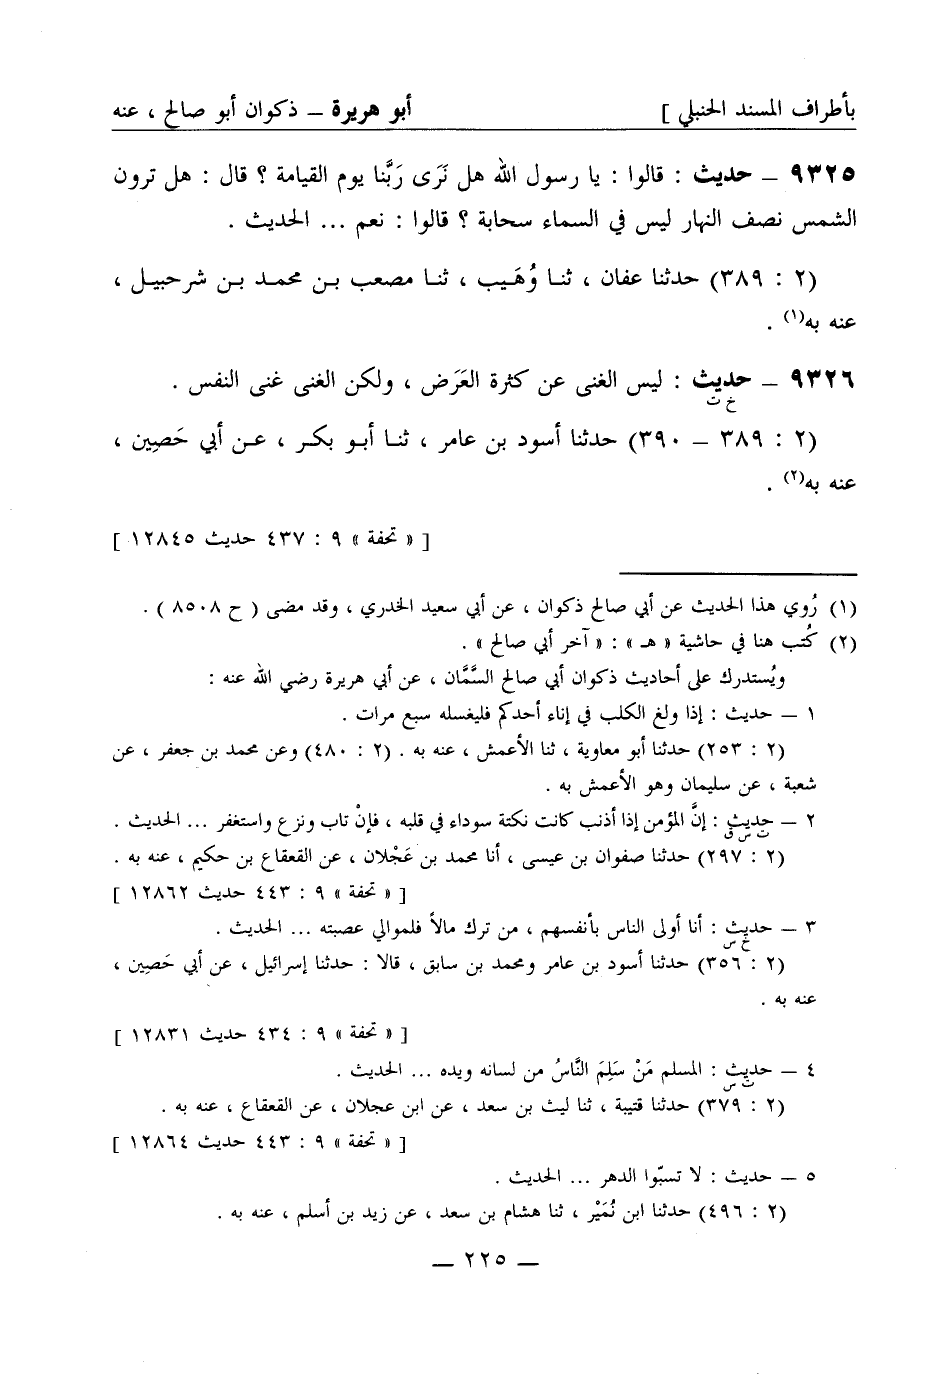 بأطراف المسند الحنبلي ] أبو هريرة ــ ذكوان أبو صالح ، عنه
٩٣٢٥ ــ حديث : قالوا : يا رسول الله هل نَرَى رَبَّنا يوم القيامة ؟ قال : هل ترون
الشمس نصف النهار ليس في السماء سحابة ؟ قالوا : نعم ... الحديث .
(٢ : ٣٨٩) حدثنا عفان ، ثنا وُهَيب ، ثنا مصعب بن محمد بن شرحبيل ،
عنه به(١) .
٩٣٢٦ ــ حديث : ليس الغنى عن كثرة العَرَض ، ولكن الغنى غنى النفس .
خ ت
(٢ : ٣٨٩ ــ ٣٩٠) حدثنا أسود بن عامر ، ثنا أبو بكر ، عن أبي حَصِين ،
عنه به(٢) .
[ « تحفة » ٩ : ٤٣٧ حديث ١٢٨٤٥ ]
(١) رُوي هذا الحديث عن أبي صالح ذكوان ، عن أبي سعيد الخدري ، وقد مضى ( ح ٨٥٠٨ ) .
(٢) كُتب هنا في حاشية « هـ » : « آخر أبي صالح » .
ويُستدرك على أحاديث ذكوان أبي صالح السَّمَّان ، عن أبي هريرة رضي الله عنه :
١ ــ حديث : إذا ولغ الكلب في إناء أحدكم فليغسله سبع مرات .
(٢ : ٢٥٣) حدثنا أبو معاوية ، ثنا الأعمش ، عنه به . (٢ : ٤٨٠) وعن محمد بن جعفر ، عن
شعبة ، عن سليمان وهو الأعمش به .
٢ ــ حديث : إنَّ المؤمن إذا أذنب كانت نكتة سوداء في قلبه ، فإنْ تاب ونزع واستغفر ... الحديث .
ت س ق
(٢ : ٢٩٧) حدثنا صفوان بن عيسى ، أنا محمد بن عَجْلان ، عن القعقاع بن حكيم ، عنه به .
[ « تحفة » ٩ : ٤٤٣ حديث ١٢٨٦٢ ]
٣ ــ حديث : أنا أولى الناس بأنفسهم ، من ترك مالاً فلموالي عصبته ... الحديث .
خ س
(٢ : ٣٥٦) حدثنا أسود بن عامر ومحمد بن سابق ، قالا : حدثنا إسرائيل ، عن أبي حَصِين ،
عنه به .
[ « تحفة » ٩ : ٤٣٤ حديث ١٢٨٣١ ]
٤ ــ حديث : المسلم مَنْ سَلِمَ النَّاسُ من لسانه ويده ... الحديث .
ت س
(٢ : ٣٧٩) حدثنا قتيبة ، ثنا ليث بن سعد ، عن ابن عجلان ، عن القعقاع ، عنه به .
[ « تحفة » ٩ : ٤٤٣ حديث ١٢٨٦٤ ]
٥ ــ حديث : لا تسبّوا الدهر ... الحديث .
(٢ : ٤٩٦) حدثنا ابن نُمَيْر ، ثنا هشام بن سعد ، عن زيد بن أسلم ، عنه به .
ــ ٢٢٥ ــ